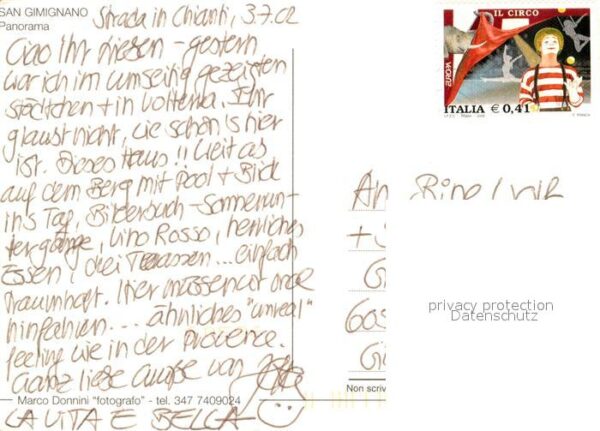 SAN GIMIGNANO
Panorama
Strada in Chianti, 3.7.02
Ciao Ihr Riesen - gestern
war ich im umseitig gezeigten
Städtchen + in Volterra. Ihr
glaubt nicht, wie schön's hier
ist. Dieses Haus!! Weit ab
auf dem Berg mit Pool + Blick
in's Tag, Bilderbuch-Sonnenun-
tergänge, Vino Rosso, herrliches
Essen, drei Terrassen... einfach
traumhaft. Hier müssen wir
hinfahren... ähnliches "unreal"
feeling wie in der Provence.
Ganz liebe Grüße von
LA VITA E BELLA
Marco Donnini "fotografo" - tel. 347 7409024
IL CIRCO
EUROPA
ITALIA € 0,41
An
+
G
605
Gi
Non scriv
privacy protection
Datenschutz